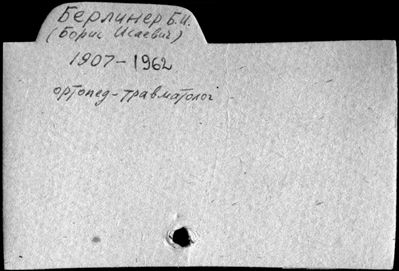 Берлинер Б.И.
(Борис Исаевич)
1907-1962
ортопед-травматолог